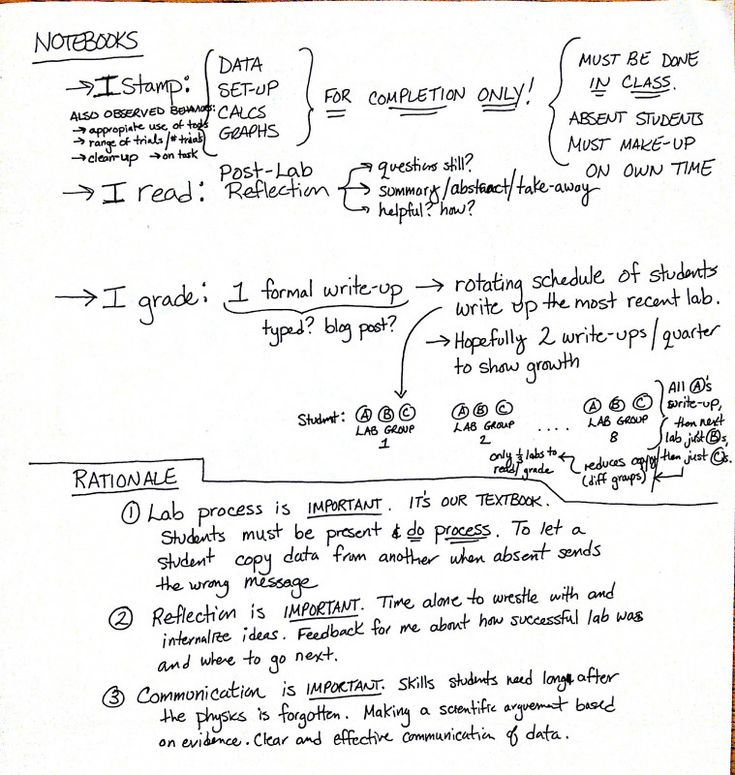 NOTEBOOKS
→ I stamp:
DATA
SET-UP
CALCS
GRAPHS
FOR COMPLETION ONLY!
MUST BE DONE
IN CLASS.
ABSENT STUDENTS
MUST MAKE-UP
ON OWN TIME
ALSO OBSERVED BEHAVIORS:
→ appropiate use of tools
→ range of trials/# trials
→ clean-up → on task
→ I read: Post-Lab
Reflection
→ questions still?
→ summary/abstract/take-away
→ helpful? how?
→ I grade: 1 formal write-up → rotating schedule of students
write up the most recent lab.
typed? blog post?
→ Hopefully 2 write-ups/quarter
to show growth
Student: A B C
LAB GROUP
1
A B C
LAB GROUP
2
....
A B C
LAB GROUP
8
All A's
write-up,
then next
lab just B's,
then just C's.
only 1/3 labs to
read/grade
reduces copying
(diff groups)
RATIONALE
① Lab process is IMPORTANT. IT'S OUR TEXTBOOK.
Students must be present & do process. To let a
student copy data from another when absent sends
the wrong message
② Reflection is IMPORTANT. Time alone to wrestle with and
internalize ideas. Feedback for me about how successful lab was
and where to go next.
③ Communication is IMPORTANT. Skills students need long after
the physics is forgotten. Making a scientific arguement based
on evidence. Clear and effective communication of data.